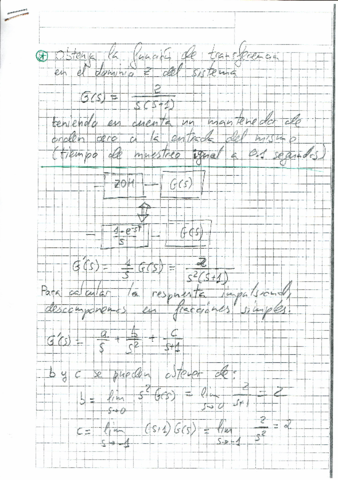 * Obtenga la función de transferencia
en el dominio z del sistema
G(s) = 2 / s(s+1)
teniendo en cuenta un mantenedor de
orden cero a la entrada del mismo
(tiempo de muestreo igual a 0.1 segundos)
ZOH G(s)
1-e^-sT / s G(s)
G'(s) = 1/s G(s) = 2 / s²(s+1)
Para calcular la respuesta impulsional,
descomponemos en fracciones simples:
G'(s) = a/s + b/s² + c/s+1
b y c se pueden obtener de:
b = lim s→0 s² G(s) = lim s→0 2/s+1 = 2
c = lim s→-1 (s+1) G(s) = lim s→-1 2/s² = 2